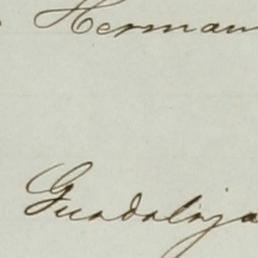 Herman
Guadalaja